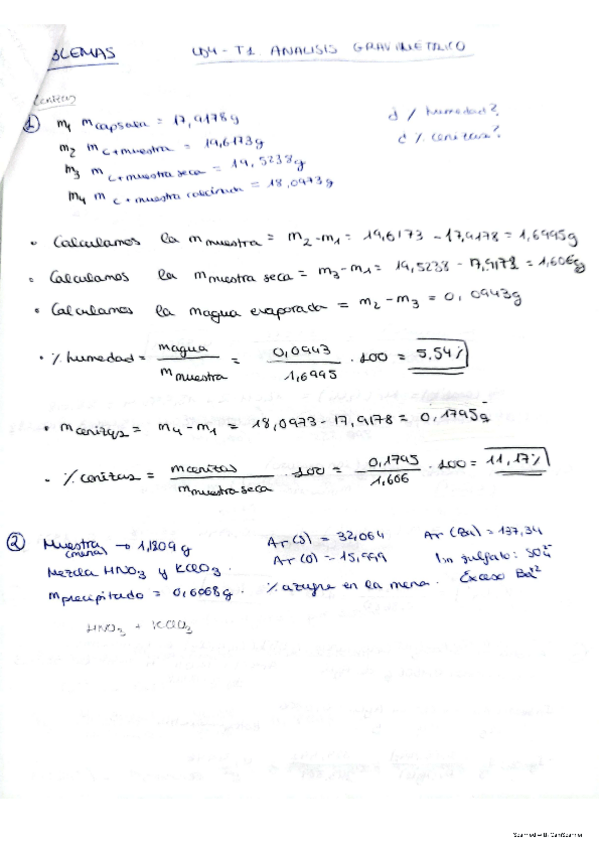 BLEMAS UD4 - T1. ANALISIS GRAVIMETRICO
Cenizas
① m1 mcapsula = 17,9178g
m2 mc+muestra = 19,6173g
m3 mc+muestra seca = 19,5238g
m4 mc+muestra calcinada = 18,0973g
¿ % humedad?
¿ % cenizas?
• Calculamos la mmuestra = m2-m1 = 19,6173 - 17,9178 = 1,6995g
• Calculamos la mmuestra seca = m3-m1 = 19,5238 - 17,9178 = 1,606g
• Calculamos la magua evaporada = m2-m3 = 0,0943g
• % humedad = magua / mmuestra = 0,0943 / 1,6995 · 100 = 5,54%
• mcenizas = m4-m1 = 18,0973 - 17,9178 = 0,1795g
• % cenizas = mcenizas / mmuestra seca · 100 = 0,1795 / 1,606 · 100 = 11,17%
② Muestra (mena) → 1,1809 g Ar(S) = 32,064 Ar(Ba) = 137,34
Mezcla HNO3 y KClO3. Ar(O) = 15,999 Ion sulfato: SO4 2-
mprecipitado = 0,6068g. % azufre en la mena. Exceso Ba+2
HNO3 + KClO3